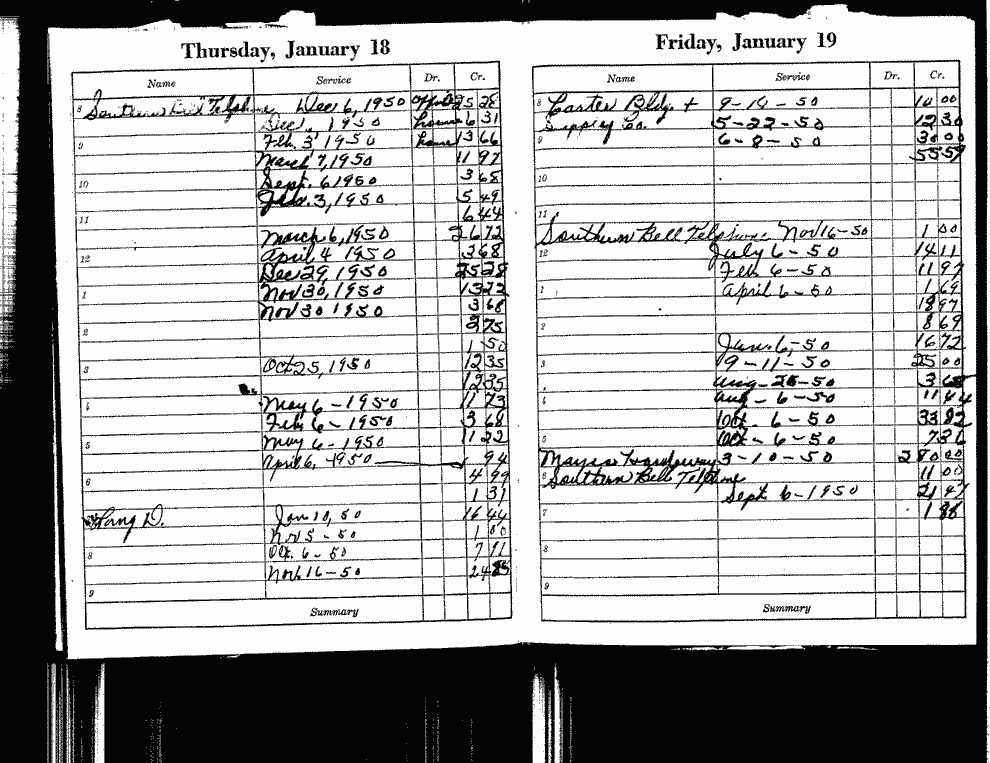 Thursday, January 18
Name Service Dr. Cr.
8 Southern Bell Telephone Dec 6, 1950 office 25 28
Dec 1, 1950 house 6 31
9 Feb 3, 1950 house 13 66
March 7, 1950 11 97
10 Sept. 6 1950 3 68
Jan. 3, 1950 5 49
11 6 44
March 6, 1950 26 72
12 April 4 1950 3 68
Dec 29, 1950 25 28
1 Nov 30, 1950 13 22
Nov 30 1950 3 68
2 3 75
1 50
3 Oct 25, 1950 12 35
12 35
4 May 6 - 1950 11 73
Feb 6 - 1950 3 68
5 May 6 - 1950 11 22
April 6, - 1950 94
6 4 99
1 31
Long D. Jan 10, 50 16 44
Nov 5 - 50 1 00
8 Oct. 6 - 50 7 71
Nov. 16 - 50 24
9
Summary
Friday, January 19
Name Service Dr. Cr.
8 Bldg + 9 - 14 - 50 10 00
Co. 5 - 22 - 50 12 30
9 6 - 8 - 50 30 00
55 59
10
11
Southern Bell Telephone Nov 16 - 50 1 00
12 July 6 - 50 14 11
Feb 6 - 50 11 97
1 April 6 - 50 1 69
18 97
2 8 69
Jan. 6, - 50 16 72
3 9 - 11 - 50 25 00
4 Aug - - 50 3 68
Aug - 6 - 50 11 44
Oct. 6 - 50 33 82
5 Oct - 6 - 50 7 36
3 - 10 - 50 280 00
6 Southern Bell Telephone 11 00
Sept 6 - 1950 21 47
7 1 86
8
9
Summary